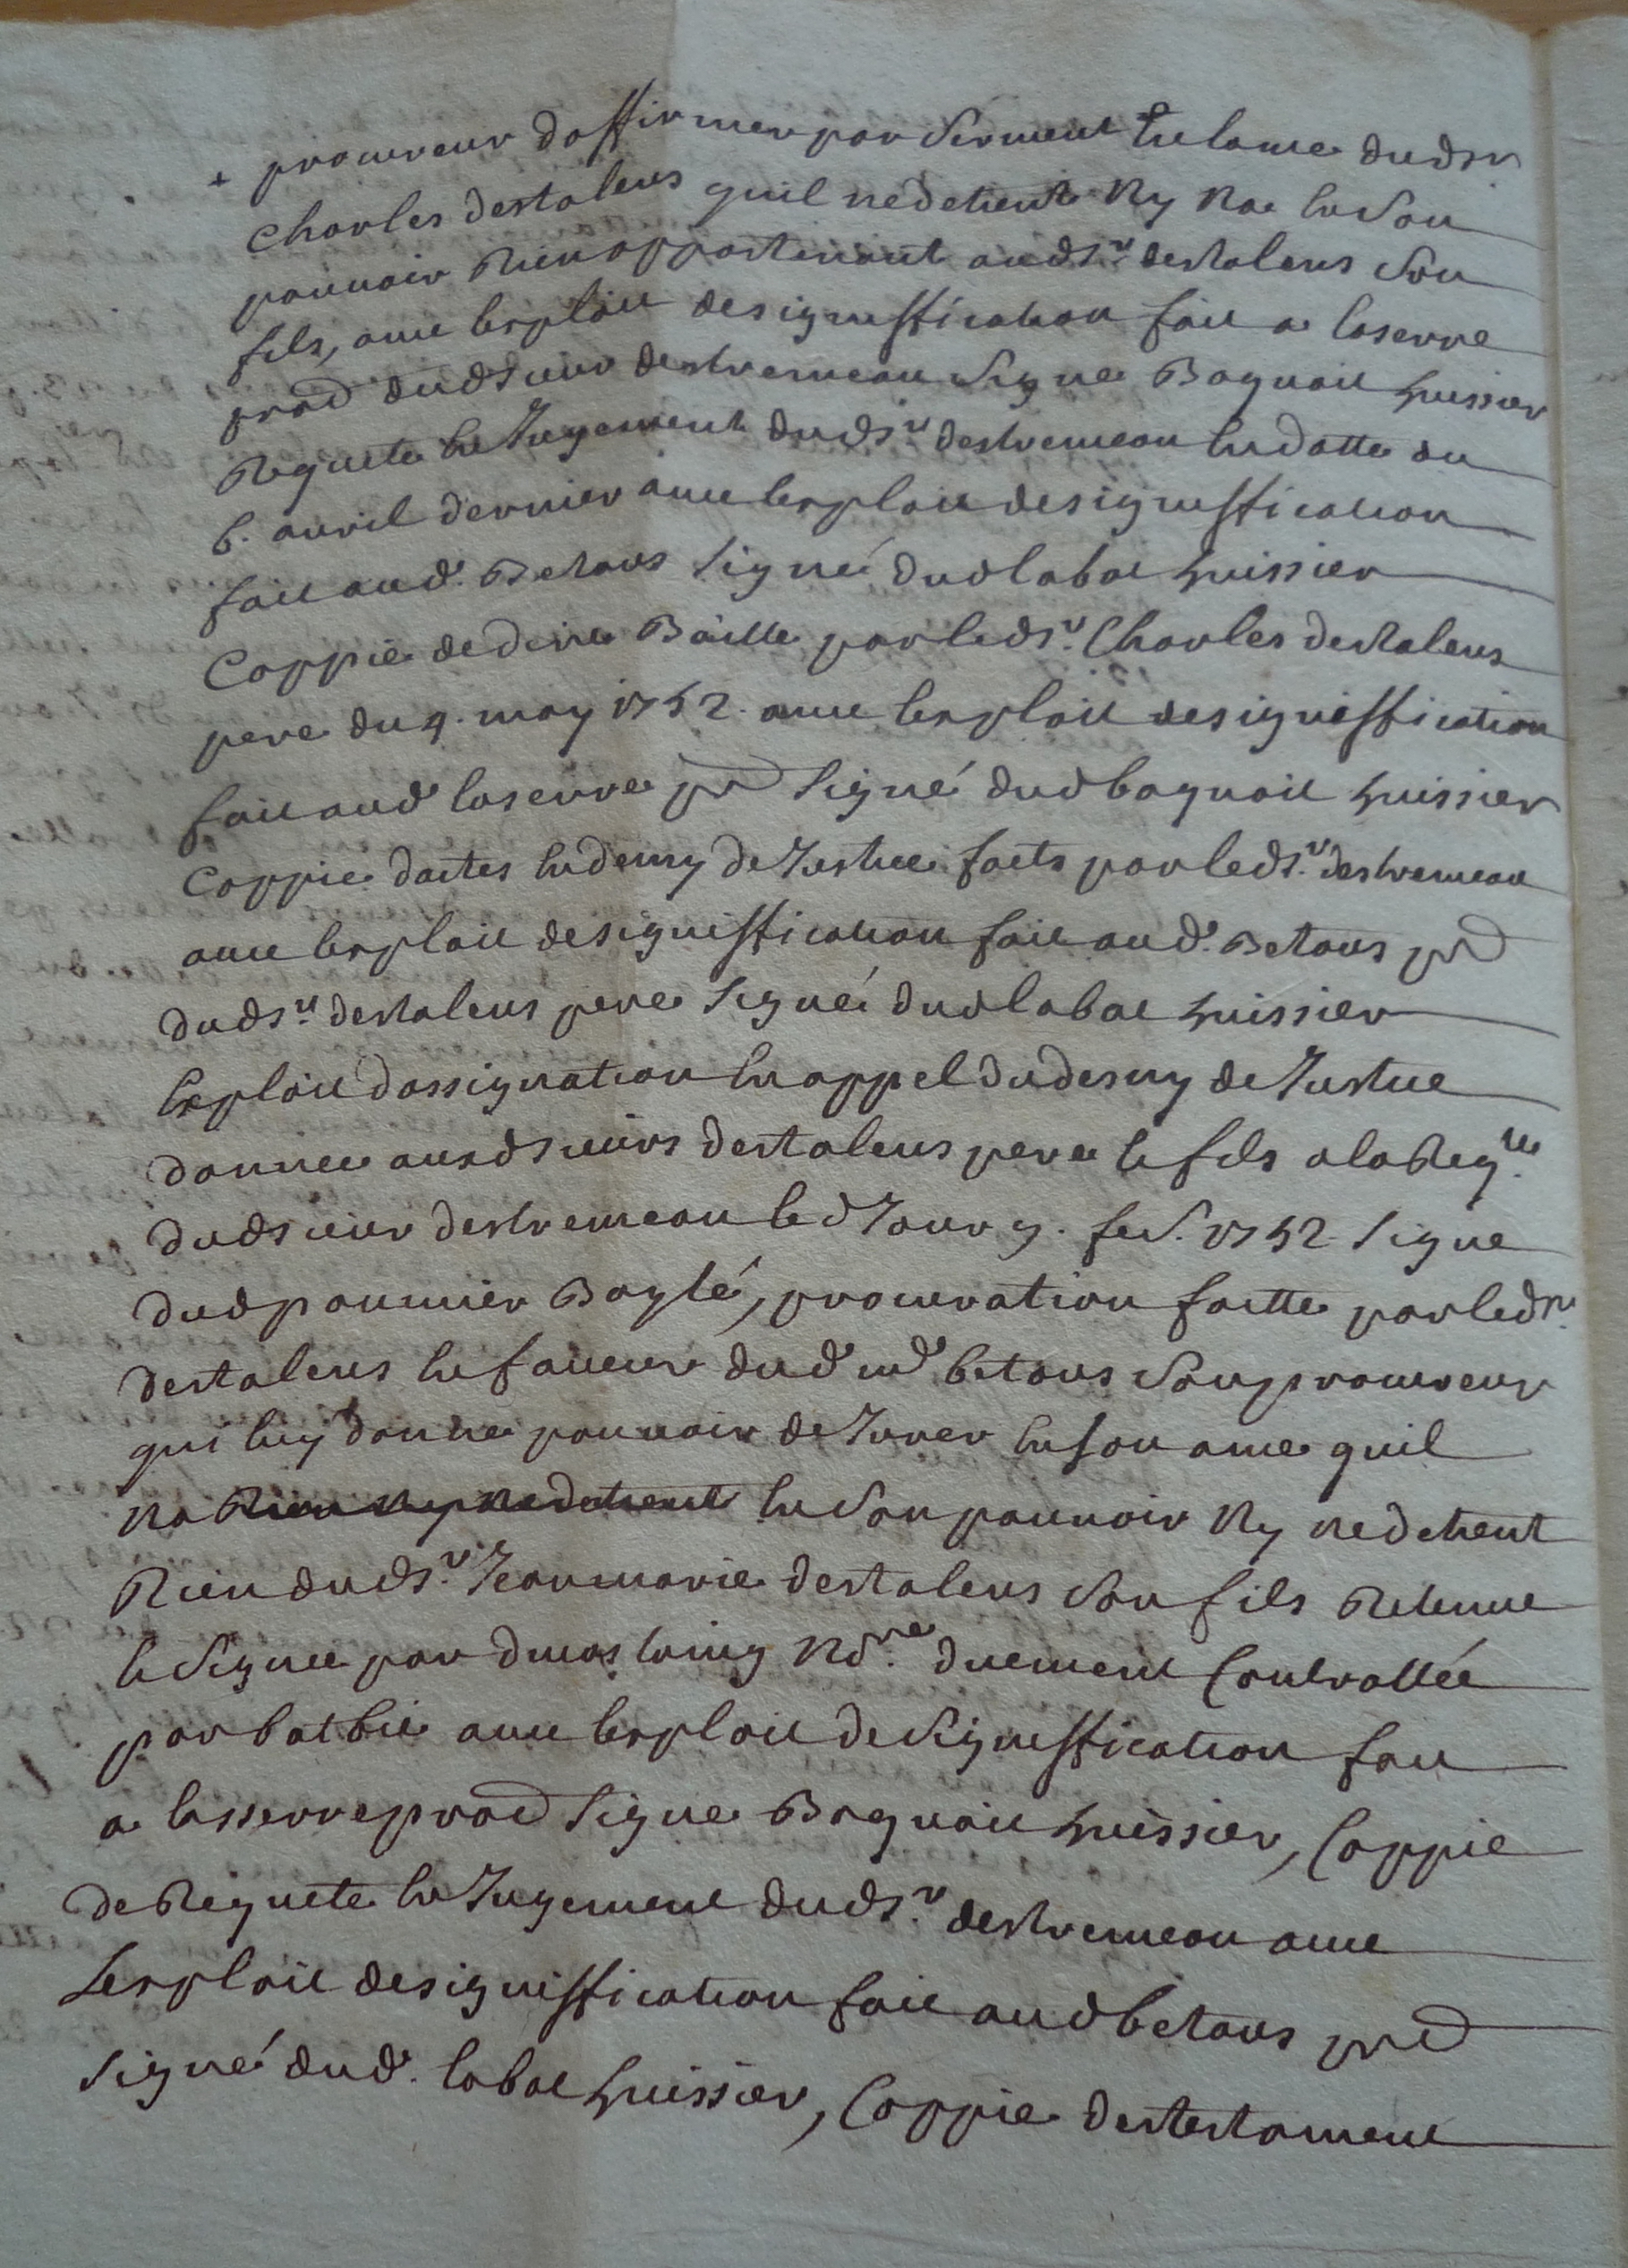 + procureur daffirmer par serment en lame dudsr
Charles destalens quil nedetient Ny Na en Son
pouvoir Rien appartenant auds.r destalens Son
fils, avec lexploit designiffication fait a laserre
proc dudsieur destremeau Signe Baquoit huissier
Requete et Jugement duds.r destremeau en datte du
6. avril dernier avec lexploit designiffication
fait aud. Betous signé dud labat huissier
Coppie dedire Baille parleds.r Charles destalens
pere du 4. may 1752. avec lexploit designiffication
fait aud laserre pr signé dud baquoit huissier
Coppie dactes endeny de Justice faits par leds.r destremeau
avec lexploit designiffication fait aud. Betous pr
duds.r destalens pere signé dud labat huissier
Exploit dassignation en appel dudeny de Justice
donnee ausdsieurs destalens pere et fils alaReq.te
dudsieur destremeau led Jour 9. 1752. signe
dud paumier Baylé, procuration faitte par leds.r
destalens en faveur dud md betous Son procureur
qui luy donne pouvoir de Jurer en son ame quil
na Rien ny nedetient en Son pouvoir Ny nedetient
Rien duds.r Jeanmarie destalens Son fils Retenue
et Signee par No.re duement Controllée
par batbie avec lexploit de Signiffication fait
a lasserre proc signe Baquoit huissier, Coppie
de Requete et Jugement duds.r destremeau avec
Lexploit designiffication fait aud betous pr
signé dud. labat huissier, Coppie destestament